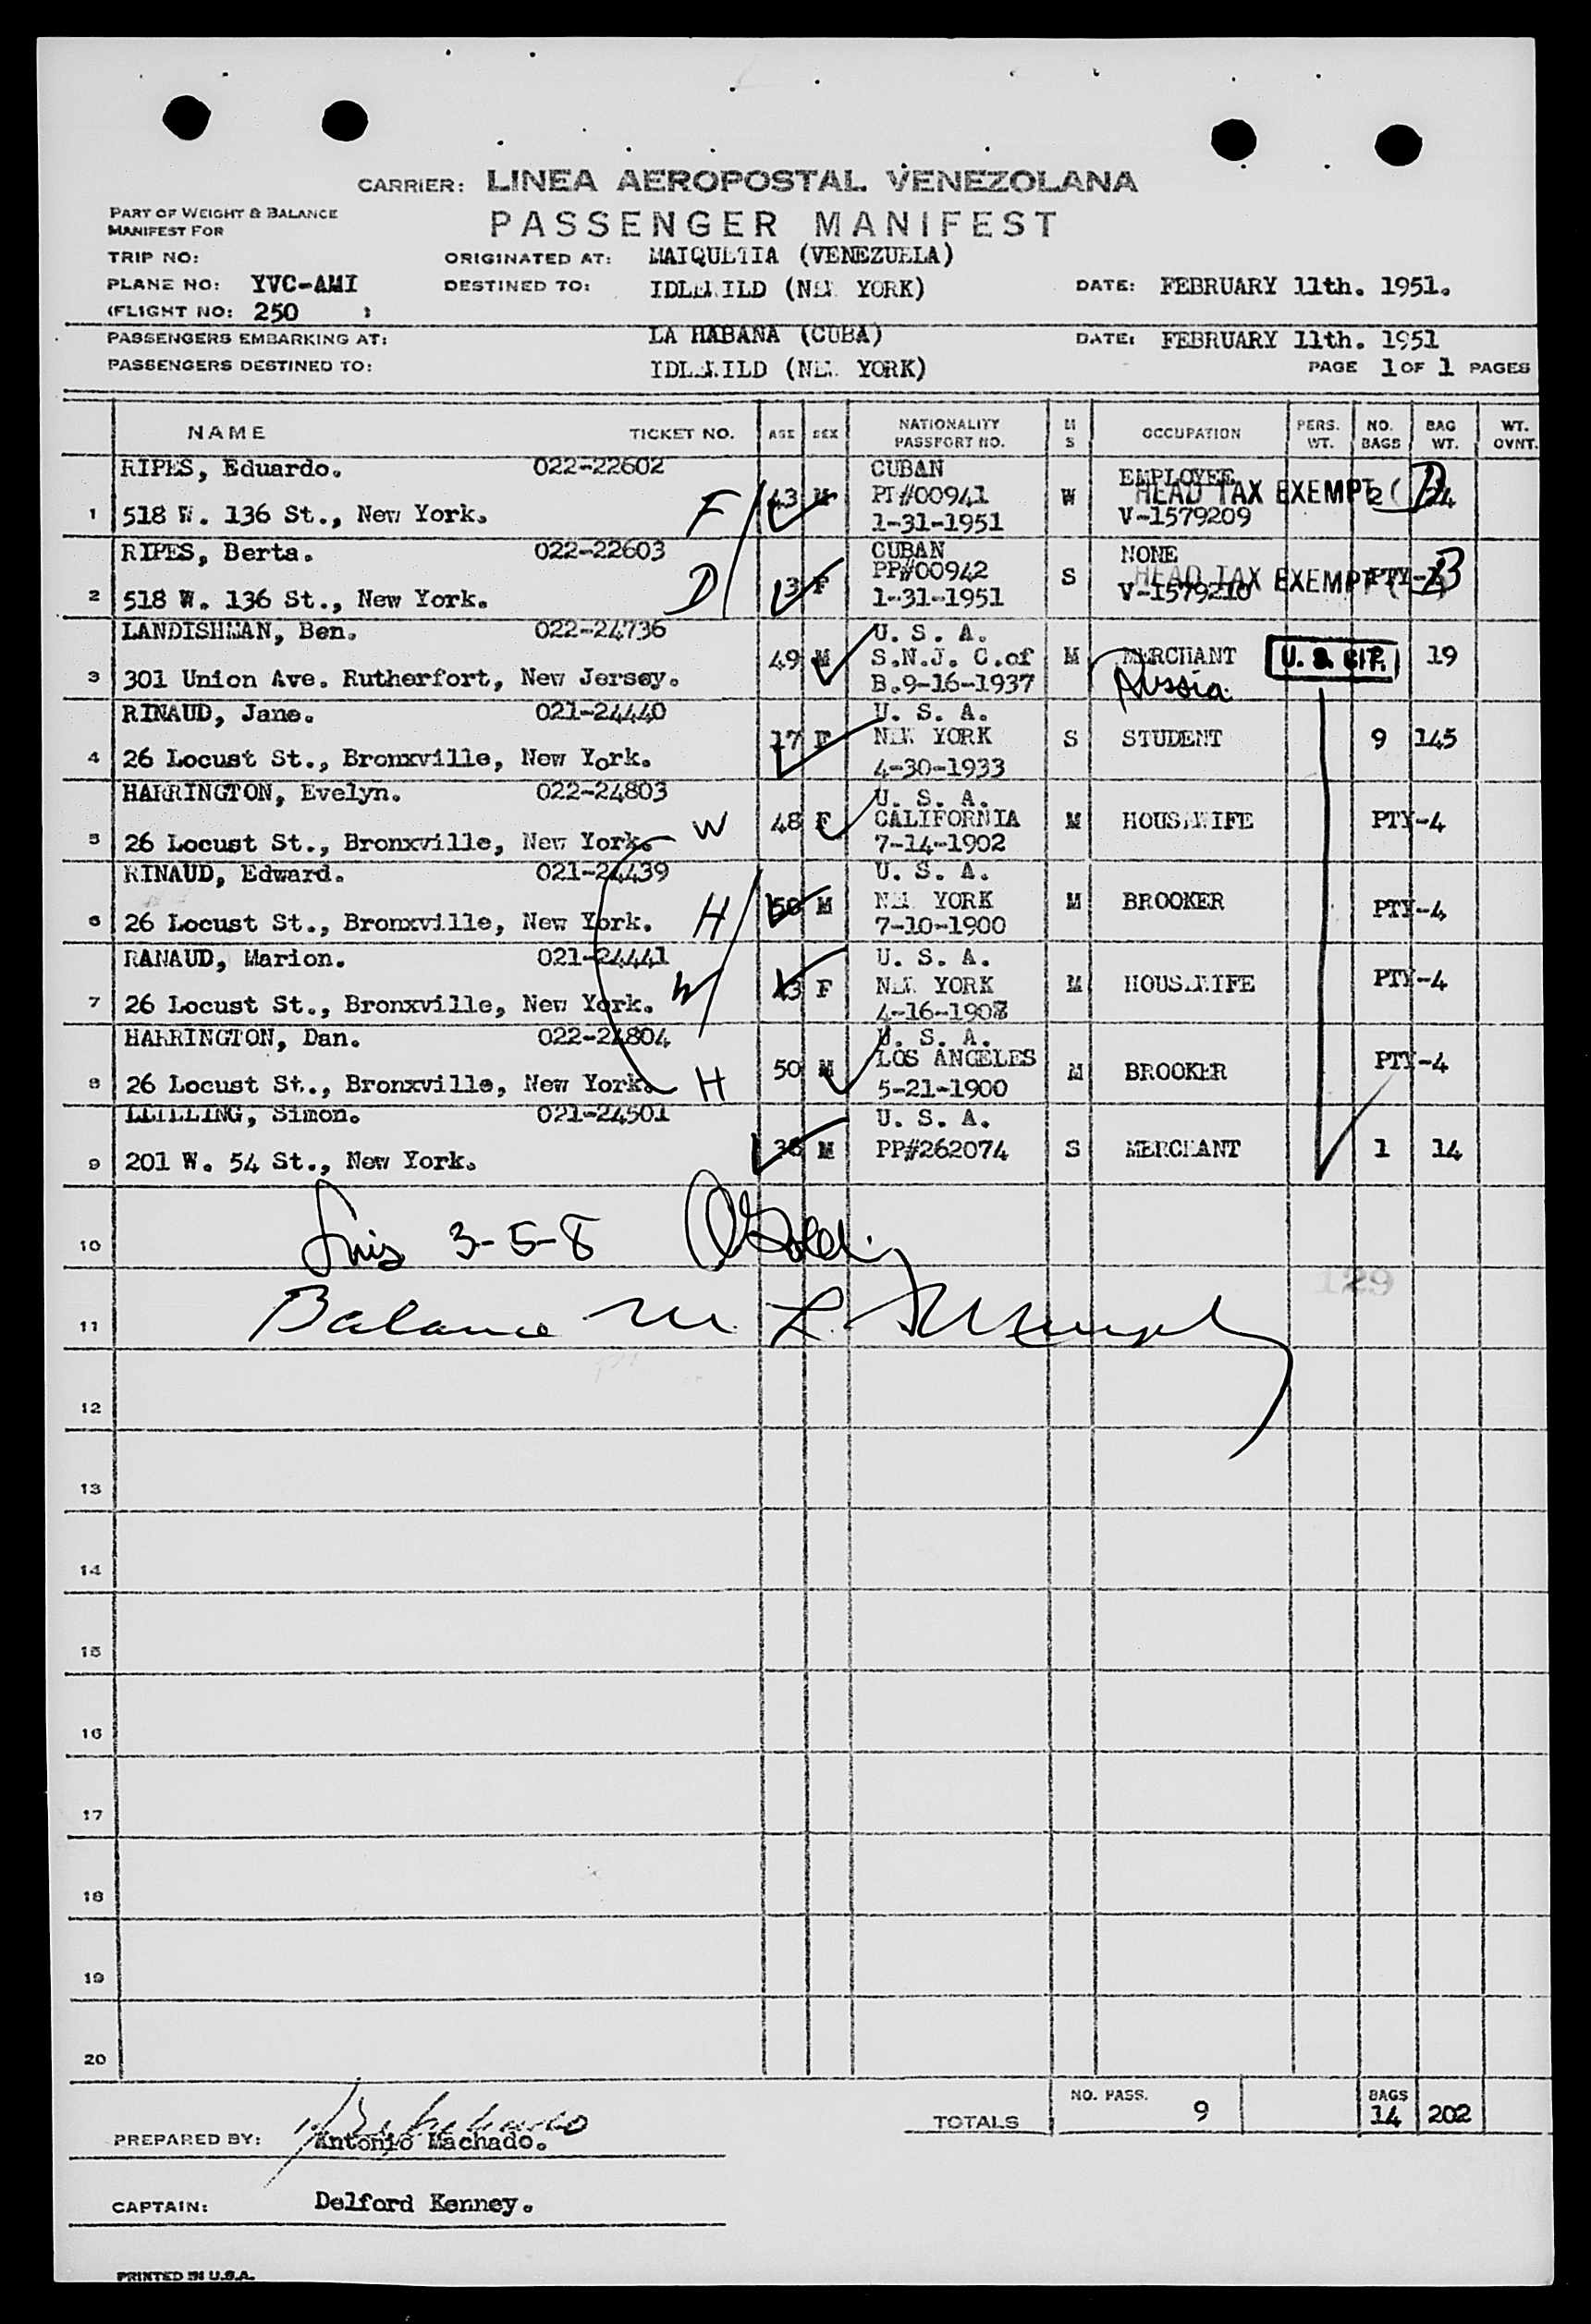 CARRIER: LINEA AEROPOSTAL VENEZOLANA
PART OF WEIGHT & BALANCE
MANIFEST FOR
PASSENGER MANIFEST
TRIP NO: ORIGINATED AT: MAIQUETIA (VENEZUELA)
PLANE NO: YVC-AMI DESTINED TO: IDLEWILD (NEW YORK) DATE: FEBRUARY 11th. 1951.
(FLIGHT NO: 250 )
PASSENGERS EMBARKING AT: LA HABANA (CUBA) DATE: FEBRUARY 11th. 1951
PASSENGERS DESTINED TO: IDLEWILD (NEW YORK) PAGE 1 OF 1 PAGES
NAME TICKET NO. AGE SEX NATIONALITY PASSPORT NO. M S OCCUPATION PERS. WT. NO. BAGS BAG WT. WT. OVNT.
RIPES, Eduardo. 022-22602 CUBAN EMPLOYEE
F 43 M PT#00941 W HEAD TAX EXEMPT 2 ( D 24
1 518 W. 136 St., New York. 1-31-1951 V-1579209
RIPES, Berta. 022-22603 CUBAN NONE
D 3 F PP#00942 S HEAD TAX EXEMPT
2 518 W. 136 St., New York. 1-31-1951 V-1579210
LANDISHMAN, Ben. 022-24736 U. S. A.
49 M S.N.J. C.of M MERCHANT U. S. CIT. 19
3 301 Union Ave. Rutherfort, New Jersey. B.9-16-1937 Russia
RINAUD, Jane. 021-24440 U. S. A.
17 F NEW YORK S STUDENT 9 145
4 26 Locust St., Bronxville, New York. 4-30-1933
HARRINGTON, Evelyn. 022-24803 U. S. A.
W 48 F CALIFORNIA M HOUSEWIFE PTY-4
5 26 Locust St., Bronxville, New York. 7-14-1902
RINAUD, Edward. 021-24439 U. S. A.
H 50 M NEW YORK M BROOKER PTY-4
6 26 Locust St., Bronxville, New York. 7-10-1900
RANAUD, Marion. 021-24441 U. S. A.
W 43 F NEW YORK M HOUSEWIFE PTY-4
7 26 Locust St., Bronxville, New York.
HARRINGTON, Dan. 022-24804 U. S. A.
50 M LOS ANGELES M BROOKER PTY-4
8 26 Locust St., Bronxville, New York. H 5-21-1900
Simon. 021-24501 U. S. A.
9 201 W. 54 St., New York. M PP#262074 S MERCHANT 1 14
10 3-5-8
129
11 Balance M. L.
12
13
14
15
16
17
18
19
20
TOTALS NO. PASS. 9 BAGS 14 202
PREPARED BY: Antonio Machado.
CAPTAIN: Delford Kenney.
PRINTED IN U.S.A.